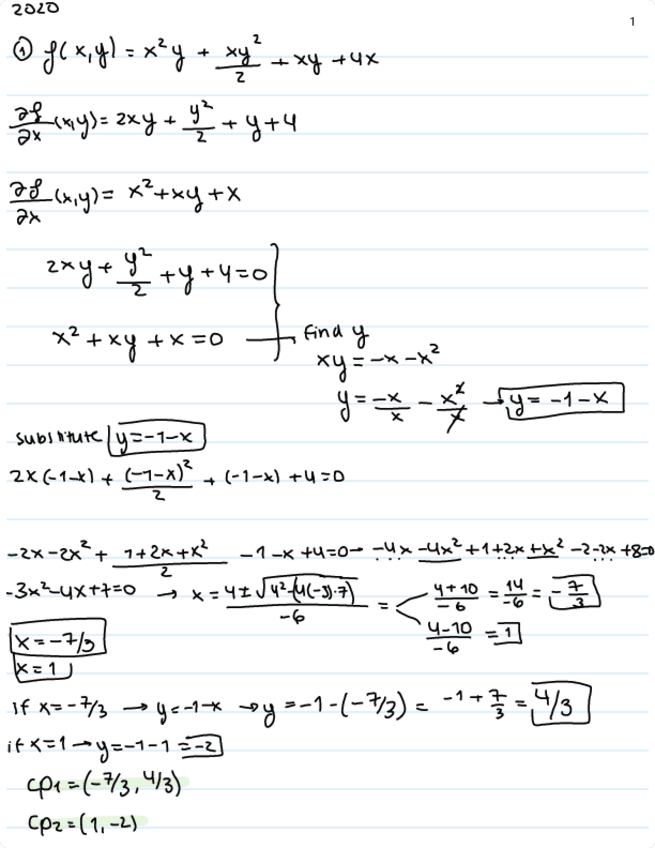 2020
1
① f(x,y) = x²y + xy²/2 + xy + 4x
∂f/∂x (x,y) = 2xy + y²/2 + y + 4
∂f/∂x (x,y) = x² + xy + x
2xy + y²/2 + y + 4 = 0
x² + xy + x = 0 → find y
xy = -x - x²
y = -x/x - x²/x → y = -1 - x
substitute y = -1 - x
2x(-1-x) + (-1-x)²/2 + (-1-x) + 4 = 0
-2x - 2x² + 1+2x+x²/2 - 1 - x + 4 = 0 → -4x - 4x² + 1 + 2x + x² - 2 - 2x + 8 = 0
-3x² - 4x + 7 = 0 → x = 4 ± √4² - (4(-3)·7)/-6 = 4+10/-6 = 14/-6 = -7/3
4-10/-6 = 1
x = -7/3
x = 1
if x = -7/3 → y = -1 - x → y = -1 - (-7/3) = -1 + 7/3 = 4/3
if x = 1 → y = -1 - 1 = -2
CP1 = (-7/3, 4/3)
CP2 = (1, -2)